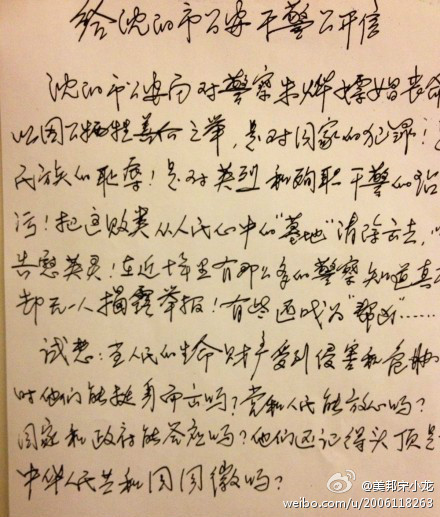 给沈阳市公安干警公开信
沈阳市公安局对警察朱烨嫖娼丧命
以因公牺牲善命之举,是对国家的犯罪!是
民族的耻辱!是对英烈和殉职干警的玷
污!把这败类从人民心中的“墓地”清除出去,以
告慰英灵!在近十年里有那么多的警察知道真相
却无一人揭露举报!有些还成为“帮凶”……
试想:当人民的生命财产受到侵害和危险
时他们能挺身而出吗?党和人民能放心吗?
国家和政府能答应吗?他们还记得头顶是
中华人民共和国国徽吗?
@美邦宋小龙
weibo.com/u/2006118263